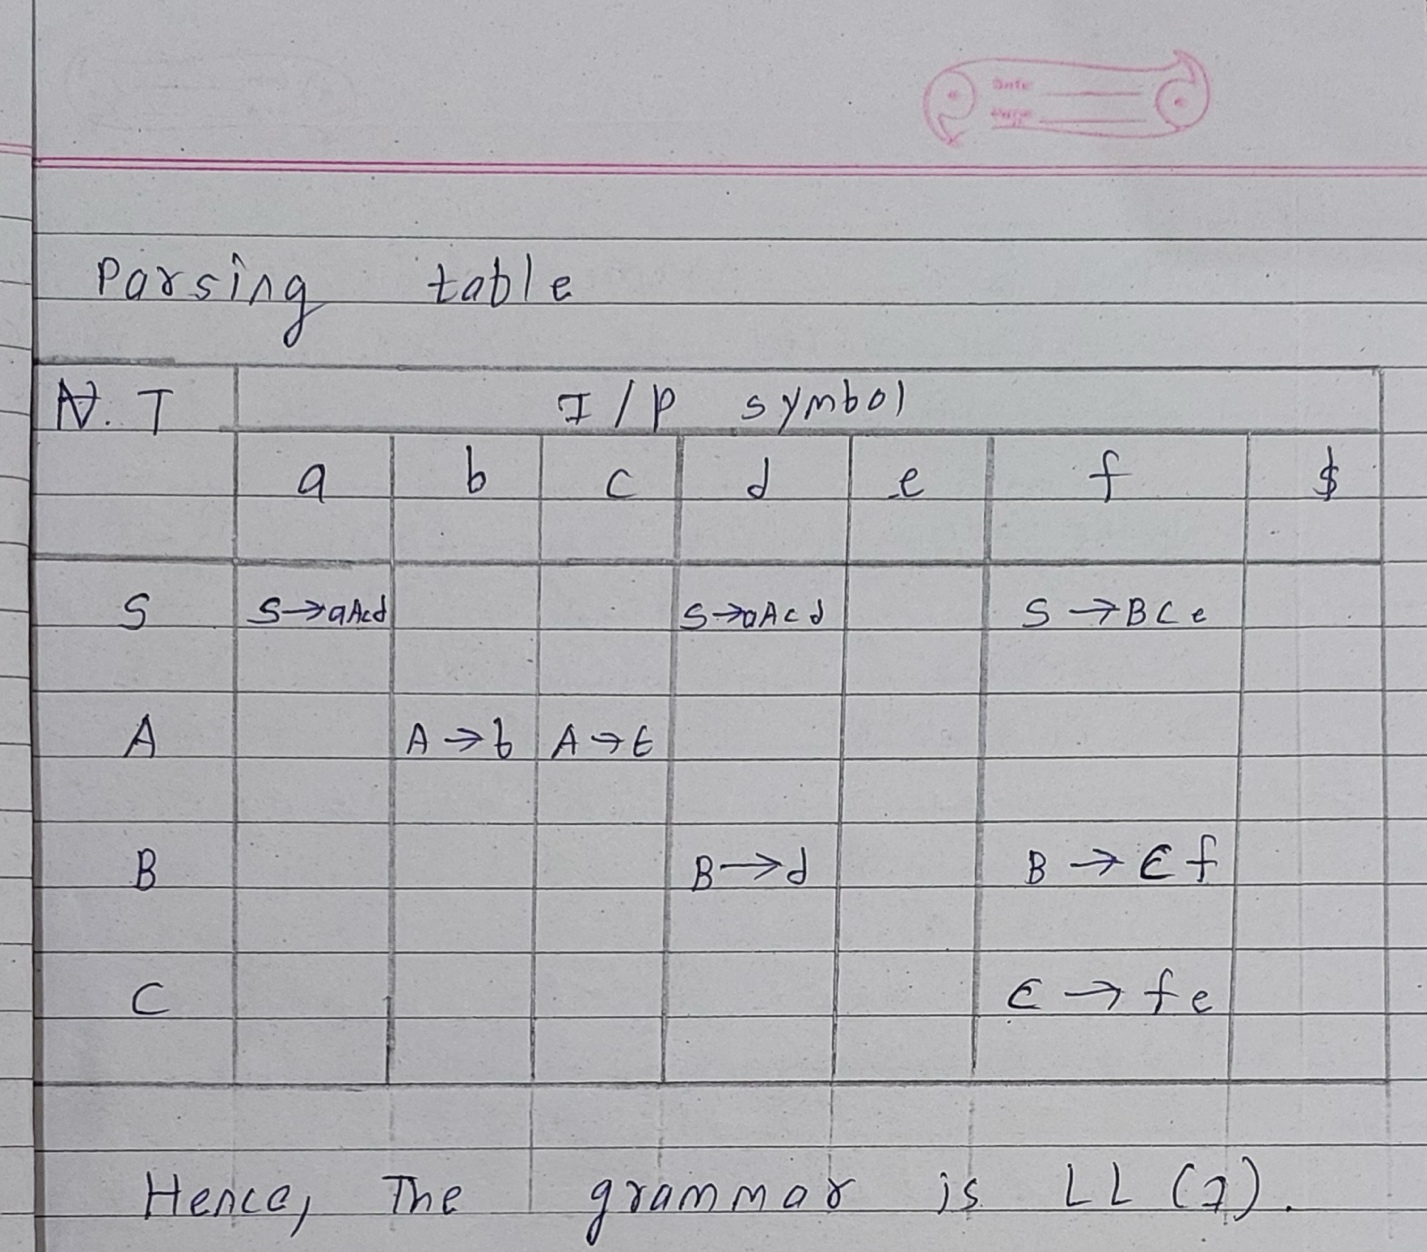 Date
Page
Parsing table
N.T I/P symbol
a b c d e f $
S S→aAcd S→aAcd S→BCe
A A→b A→ε
B B→d B→Ef
C C→fe
Hence, The grammar is LL(1).